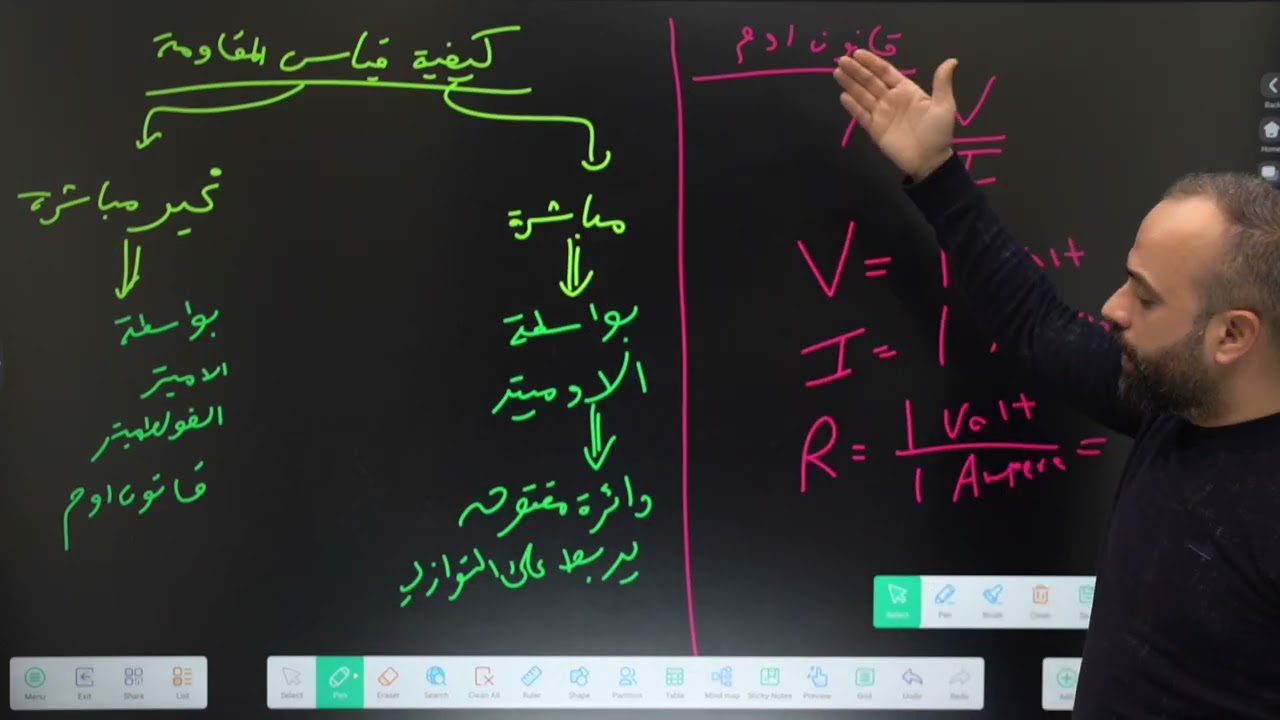 كيفية قياس المقاومة
مباشرة
بواسطة
الاوميتر
دائرة مفتوحة
يربط على التوازي
غير مباشرة
بواسطة
الاميتر
الفولطميتر
قانون اوم
قانون اوم
V
I
V = 1
I = 1
R = 1 Volt
1 Ampere =
Select
Pen
Brush
Clean
Back
Home
Menu
Exit
Share
List
Select
Pen
Eraser
Search
Clean All
Ruler
Shape
Partition
Table
Mind map
Sticky-Notes
Preview
Grid
Undo
Redo
Add